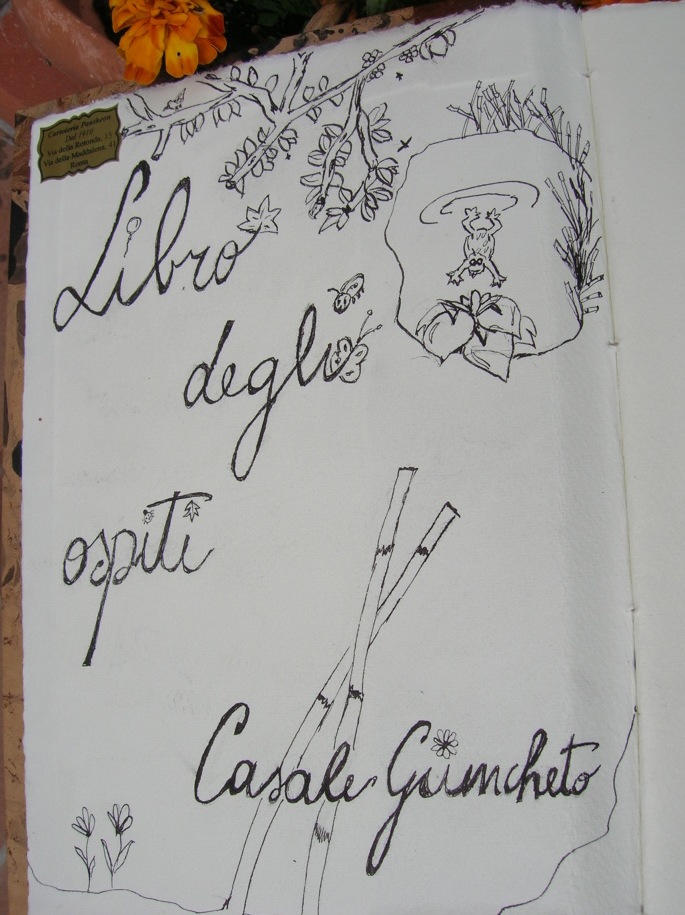 Cartoleria Pantheon
Dal 1910
Via della Rotonda, 15
Via della Maddalena, 41
Roma
Libro
degli
ospiti
Casale Giuncheto